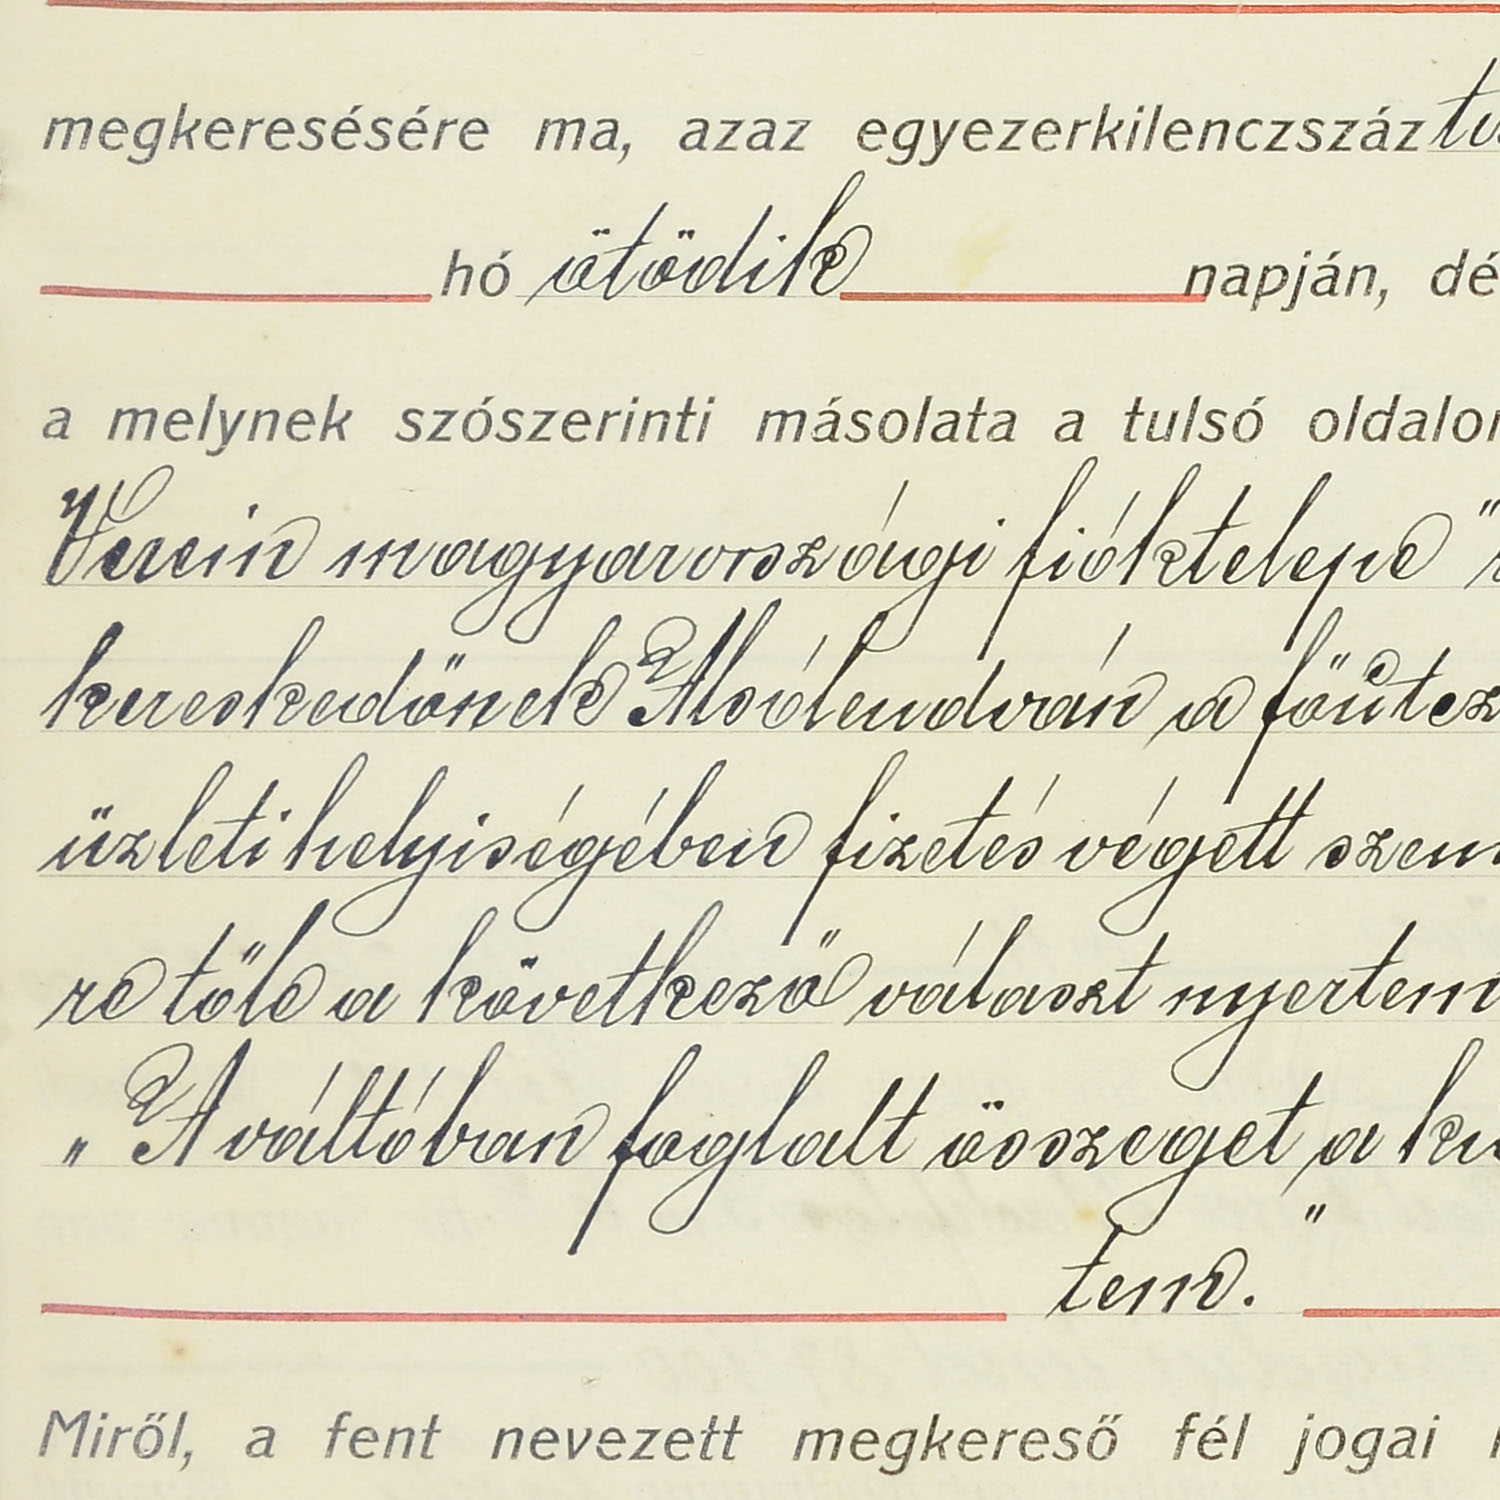 megkeresésére ma, azaz egyezerkilenczszáz
hó ötödik napján, dé
a melynek szószerinti másolata a tulsó oldalon
Verein magyarországi fióktelepe"
kereskedőnek Alsólendván a főútcz
üzleti helyiségében fizetés végett szem
re tőle a következő választ nyertem
„A váltóban foglalt összeget a ki
tem."
Miről, a fent nevezett megkereső fél jogai